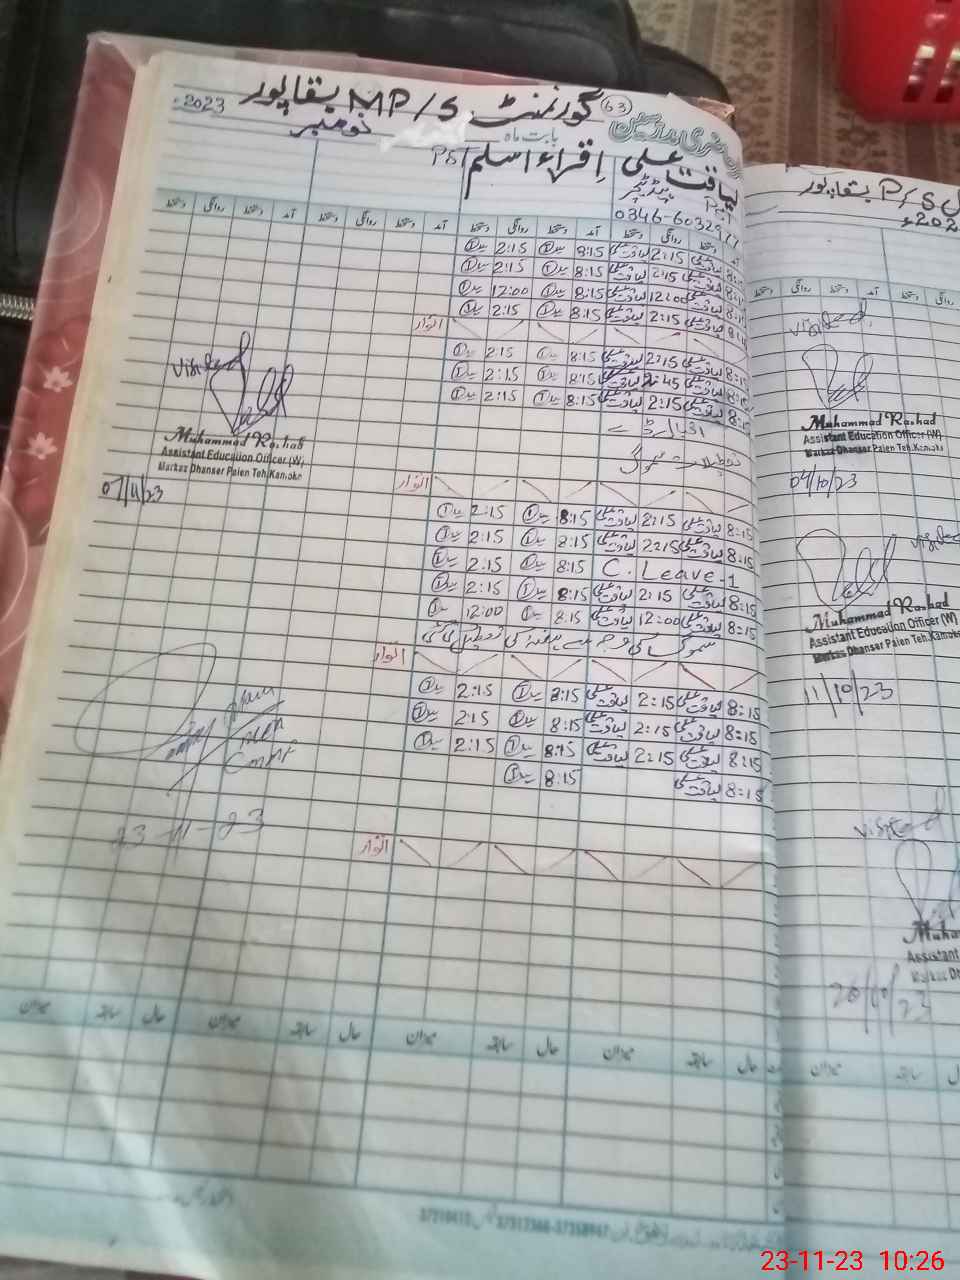 گورنمنٹ MP/S بقاپور 2023ء
63
بابت ماہ نومبر
لیاقت علی اقراء اسلم PST
PST
0346-60329
آمد دستخط روانگی دستخط آمد دستخط روانگی دستخط آمد دستخط روانگی دستخط آمد دستخط روانگی دستخط
8:15 لیاقت علی 2:15 لیاقت علی 8:15 2:15
8:15 لیاقت علی 2:15 لیاقت علی 8:15 2:15
8:15 لیاقت علی 12:00 لیاقت علی 8:15 12:00
8:15 لیاقت علی 2:15 لیاقت علی 8:15 2:15
اتوار
8:15 لیاقت علی 2:15 لیاقت علی 8:15 2:15
8:15 لیاقت علی 2:45 لیاقت علی 8:15 2:15
8:15 لیاقت علی 2:15 لیاقت علی 8:15 2:15
اقبال ڈے
تعطیلات سموگ
اتوار
8:15 لیاقت علی 2:15 لیاقت علی 8:15 2:15
8:15 لیاقت علی 2:15 لیاقت علی 8:15 2:15
C. Leave-1 8:15 2:15
8:15 لیاقت علی 2:15 لیاقت علی 8:15 2:15
8:15 لیاقت علی 12:00 لیاقت علی 8:15 12:00
سموگ کی وجہ سے ہفتہ کی تعطیل کی گئی
اتوار
8:15 لیاقت علی 2:15 لیاقت علی 8:15 2:15
8:15 لیاقت علی 2:15 لیاقت علی 8:15 2:15
8:15 لیاقت علی 2:15 لیاقت علی 8:15 2:15
8:15 لیاقت علی 8:15
اتوار
visited
Muhammad Rashad
Assistant Education Officer (W)
Markaz Dhanser Paien Teh.Kamoke
07/11/23
23-11-23
حال سابقہ میزان حال سابقہ میزان حال سابقہ میزان حال سابقہ میزان
P/S بقاپور
visited
Muhammad Rashad
Assistant Education Officer (W)
Markaz Dhanser Paien Teh.Kamoke
04/10/23
visited
Muhammad Rashad
Assistant Education Officer (W)
Markaz Dhanser Paien Teh.Kamoke
11/10/23
visited
Muha
Assistant
20/10/23
میزان سابقہ
23-11-23 10:26